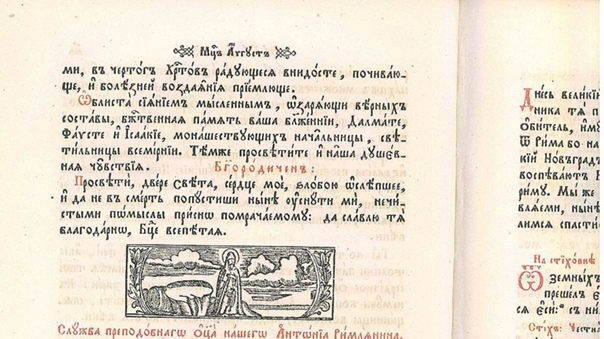 Мц҃ъ А҆́ѵгꙋстъ
ми, въ черто́гъ Хрⷭ҇то́въ ра́дꙋющесѧ внидо́сте, почива́ю-
ще, и҆ болѣ́зней воздаѧ̑нїѧ прїе́млюще.
Ѡ҆блиста̀ сїѧ́нїемъ мы́сленнымъ, ѡ҆заря́ющи вѣ́рныхъ
соста́вы, бж҃е́ственнаѧ па́мѧть ва́ша бл҃же́ннїи, Далма́те,
Фа́ѵсте и҆ І҆саа́кїе, мона́шествꙋющихъ нача́льницы, свѣ-
ти́льницы всемі́рнїи. Тѣ́мже просвѣти́те и҆ на́ша дꙋшє́в-
наѧ чꙋ̑вствїѧ. Бг҃оро́диченъ:
Просвѣтѝ, две́ре Свѣ́та, се́рдце моѐ, ѕло́бою ѡ҆слѣ́пшее,
и҆ да не въ сме́рть попꙋсти́ши ны́нѣ ᲂу҆снꙋ́ти мѝ, нечи́-
стыми по́мыслы при́снѡ помрача́емомꙋ: да сла́влю тѧ̀
благода́рнѡ, Бц҃е всепѣ́таѧ.
Слꙋ́жба преподо́бнагѡ ѻ҆тца̀ на́шегѡ А҆нтѡ́нїѧ Ри́млѧнина.
Дне́сь вели́кїй
ника тѧ̀ п
ѡ҆би́тель, и҆м
Ѿ Ри́ма бо на
кїй Новъгра́д
воспѣва́ютъ
Ри́мꙋ. Мы́ же
ва́ѧеми, ны́нѣ
лимсѧ спасти́с
На стїхо́внѣ
Ѿ земны́хъ
прише́лъ є҆
сѧ є҆сѝ: съ ни
Сті́хъ: Честна̀